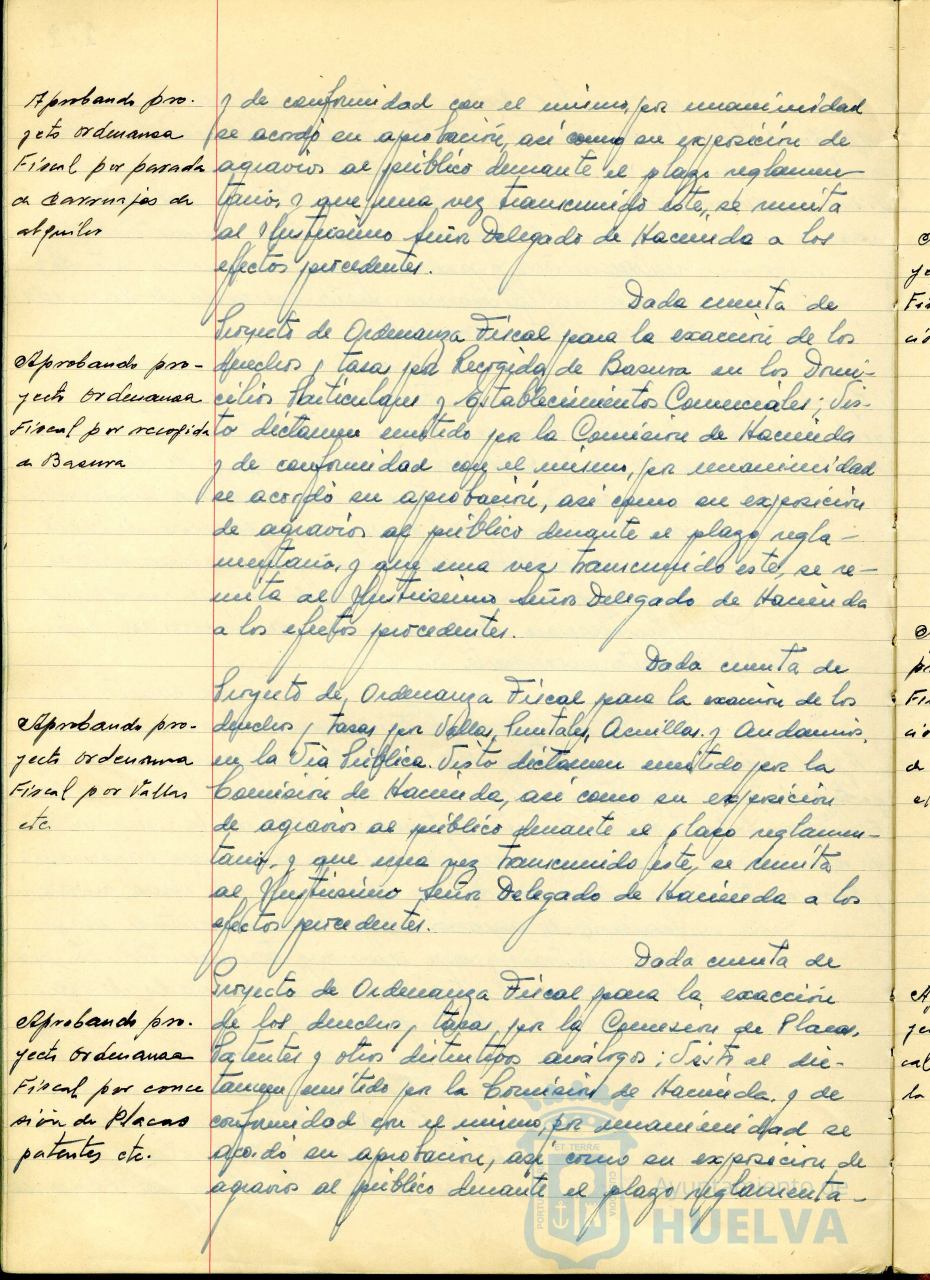 Aprobando pro-
yecto ordenanza
Fiscal por parada
de carruajes de
alquiler
y de conformidad con el mismo, por unanimidad
se acordó su aprobación, así como su exposición de
agravios al público durante el plazo reglamen-
tario, y que una vez transcurrido este, se remita
al Ilustrísimo Señor Delegado de Hacienda a los
efectos procedentes.
Dada cuenta de
Aprobando pro-
yecto ordenanza
Fiscal por recogida
de Basura
Proyecto de Ordenanza Fiscal para la exacción de los
derechos y tasas por Recogida de Basura en los Domi-
cilios Particulares y Establecimientos Comerciales; Vis-
to dictamen emitido por la Comisión de Hacienda
y de conformidad con el mismo, por unanimidad
se acordó su aprobación, así como su exposición
de agravios al público durante el plazo regla-
mentario, y que una vez transcurrido este, se re-
mita al Ilustrísimo Señor Delegado de Hacienda
a los efectos procedentes.
Dada cuenta de
Aprobando pro-
yecto ordenanza
Fiscal por Vallas
etc.
Proyecto de Ordenanza Fiscal para la exacción de los
derechos y tasas por Vallas, Puntales, Asnillas y Andamios,
en la Vía Pública. Visto dictamen emitido por la
Comisión de Hacienda, así como su exposición
de agravios al público durante el plazo reglamen-
tario, y que una vez transcurrido éste, se remita
al Ilustrísimo Señor Delegado de Hacienda a los
efectos procedentes.
Dada cuenta de
Aprobando pro-
yecto ordenanza
Fiscal por conce
sión de Placas
patentes etc.
Proyecto de Ordenanza Fiscal para la exacción
de los derechos y tasas por la Concesión de Placas,
Patentes y otros distintivos análogos; Visto el dic-
tamen emitido por la Comisión de Hacienda y de
conformidad con el mismo, por unanimidad se
acordó su aprobación, así como su exposición de
agravios al público durante el plazo reglamenta-
Ayuntamiento de
HUELVA